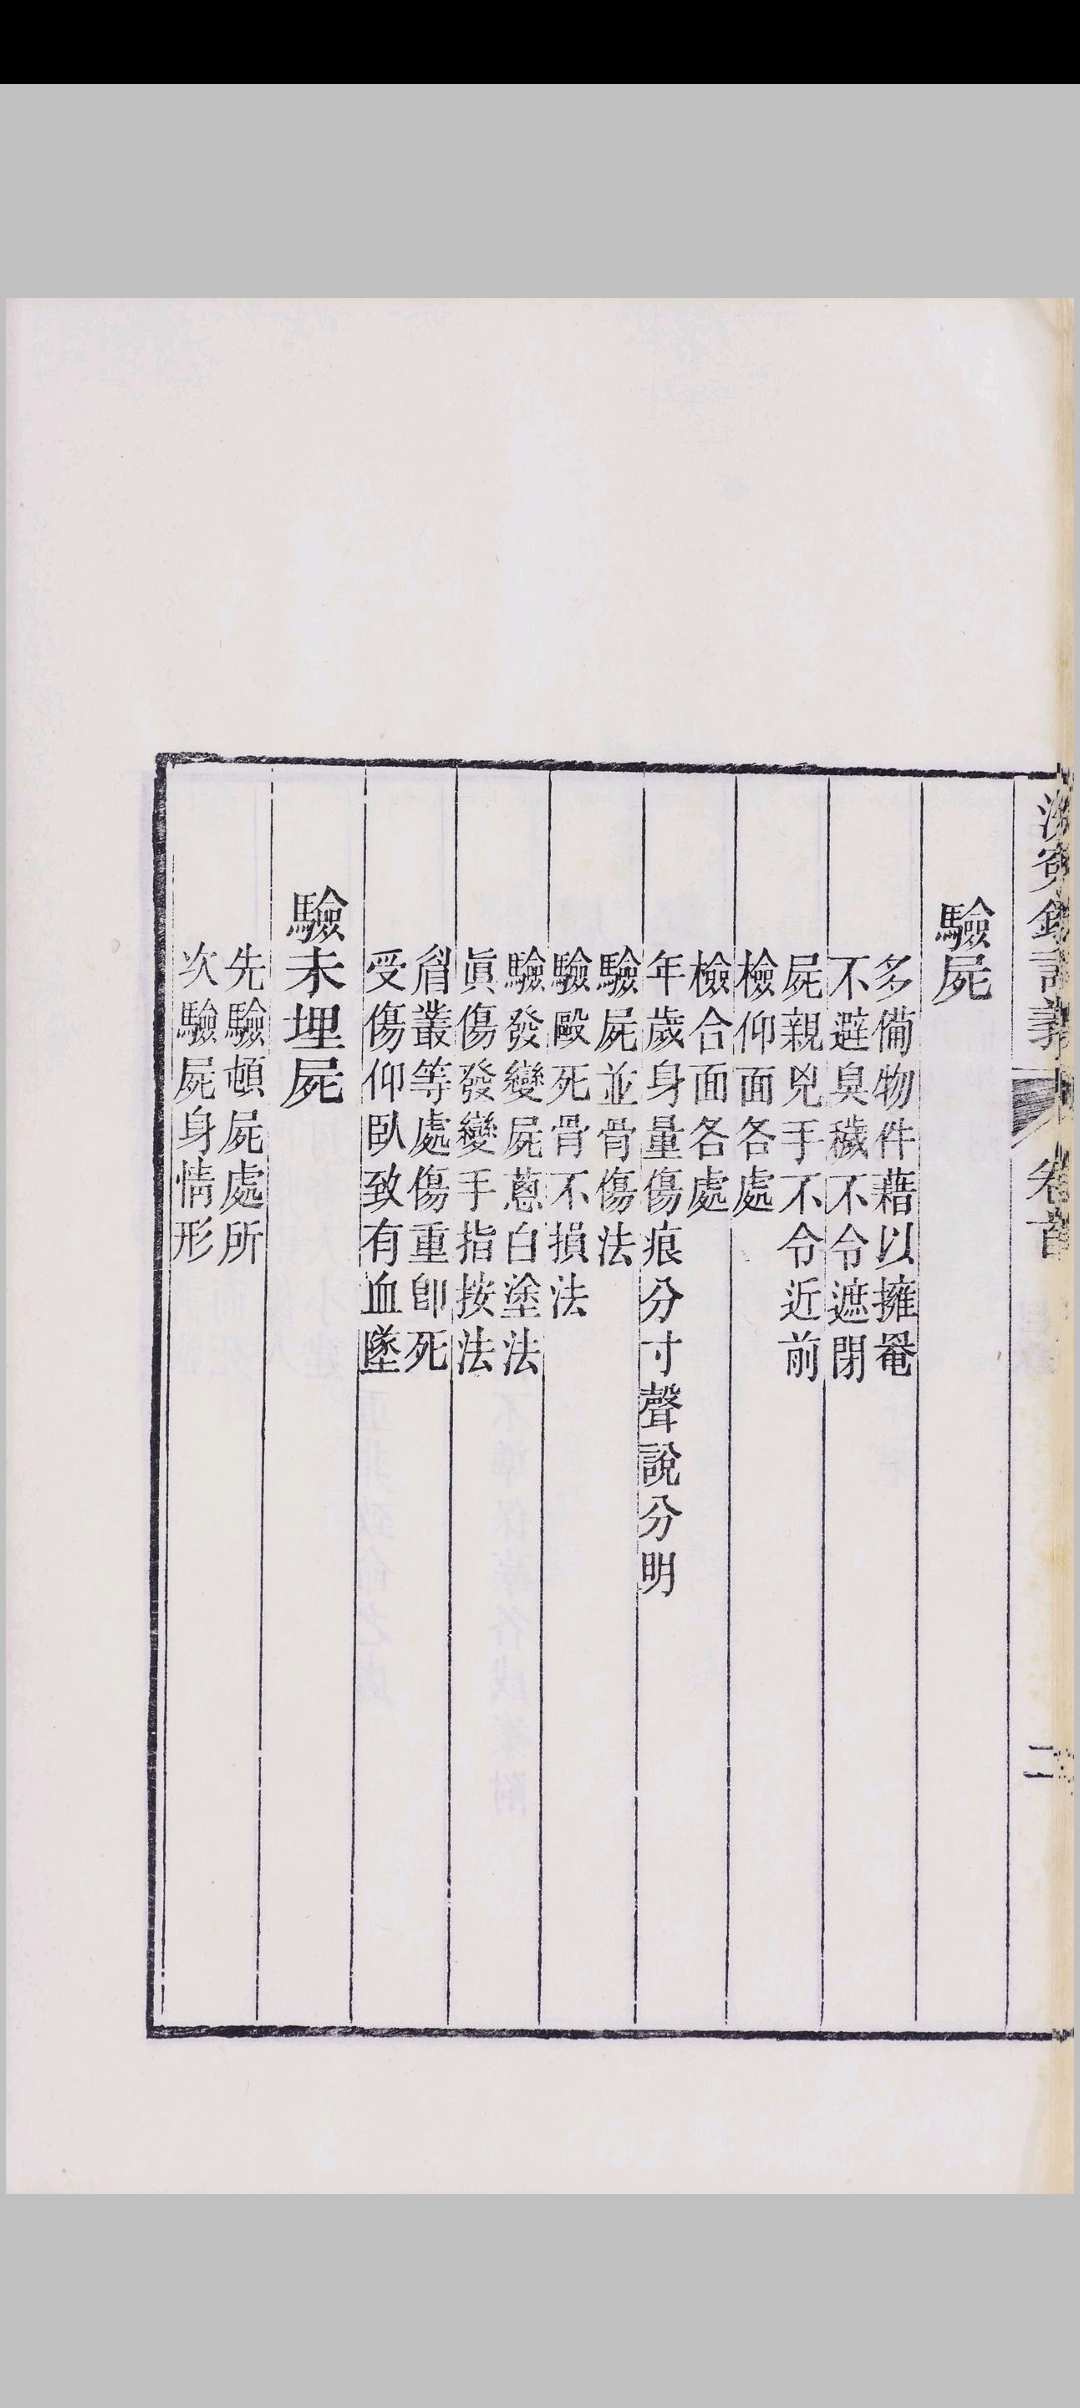 洗冤錄詳義 卷首
二
驗屍
多備物件藉以擁罨
不避臭穢不令遮閉
屍親兇手不令近前
檢仰面各處
檢合面各處
年歲身量傷痕分寸聲說分明
驗屍並骨傷法
驗毆死骨不損法
驗發變屍蔥白塗法
眞傷發變手指按法
䐡叢等處傷重卽死
受傷仰臥致有血墜
驗未埋屍
先驗頓屍處所
次驗屍身情形